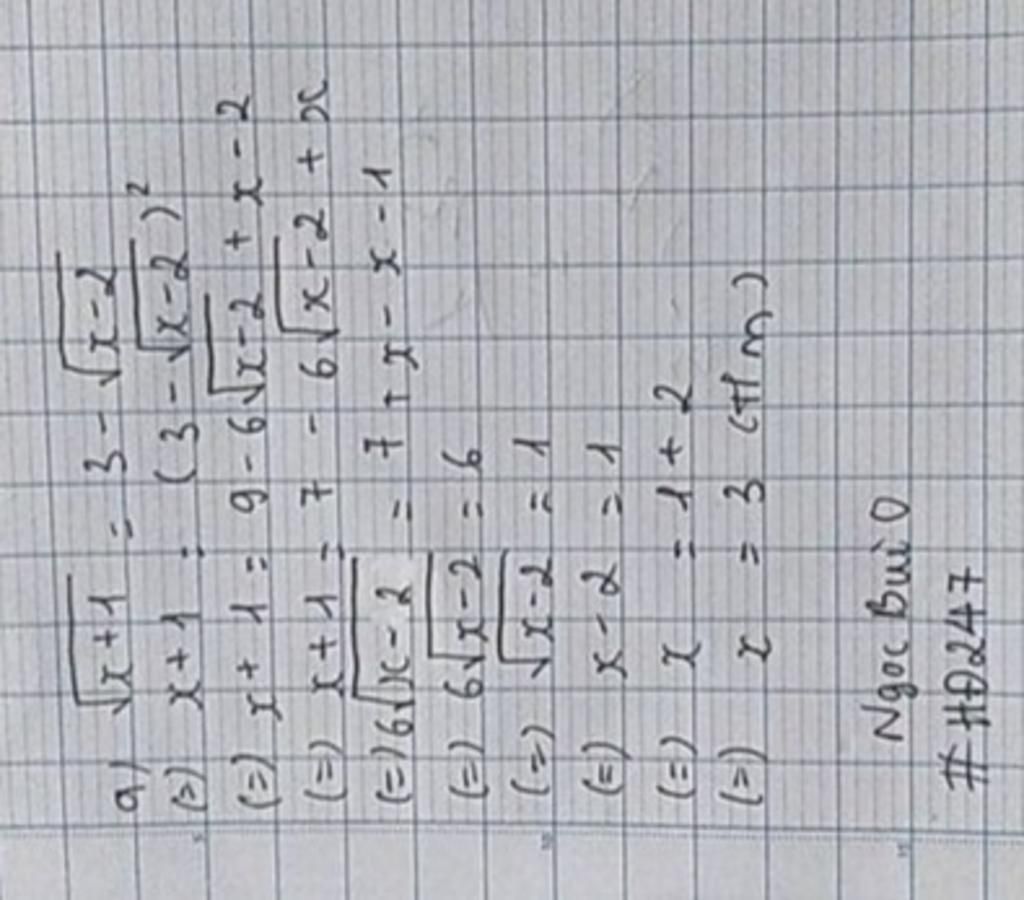 a) √(x+1) = 3 - √(x-2)
(=) x+1 = (3 - √(x-2))²
(=) x+1 = 9 - 6√(x-2) + x - 2
(=) x+1 = 7 - 6√(x-2) + x
(=) 6√(x-2) = 7 + x - x - 1
(=) 6√(x-2) = 6
(=) √(x-2) = 1
(=) x-2 = 1
(=) x = 1+2
(=) x = 3 (tlm)
Ngoc Bui0
#HĐ247